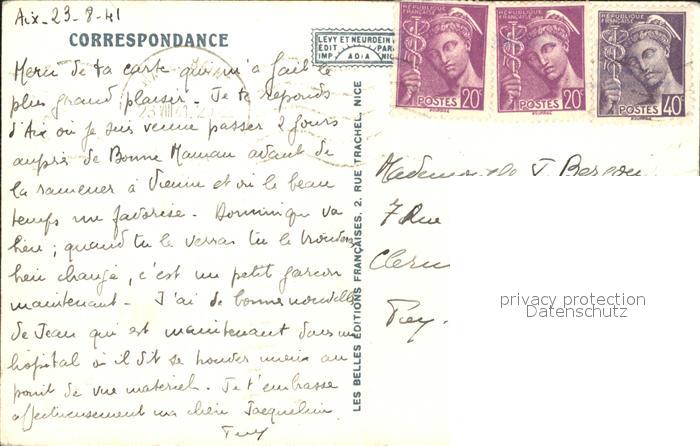 Aix-23-8-41
CORRESPONDANCE
LEVY ET NEURDEIN
EDIT
IMP
AD-IA
Merci de ta carte qui m'a fait le
plus grand plaisir. Je te réponds
d'Aix où je suis venue passer 2 jours
auprès de Bonne Maman avant de
la ramener à Vienne et où le beau
temps me favorise. Dominique va
bien ; quand tu le verras tu le trouveras
bien changé, c'est un petit garçon
maintenant. J'ai de bonnes nouvelles
de Jean qui est maintenant dans un
hôpital où il dit se trouver mieux au
point de vue matériel. Je t'embrasse
affectueusement ma chère Jacqueline
LES BELLES ÉDITIONS FRANÇAISES, 2, RUE TRACHEL, NICE
REPUBLIQUE FRANÇAISE
POSTES 20c
REPUBLIQUE FRANÇAISE
POSTES 20c
REPUBLIQUE FRANÇAISE
POSTES 40c
Mademoiselle J.
7 Rue
privacy protection
Datenschutz